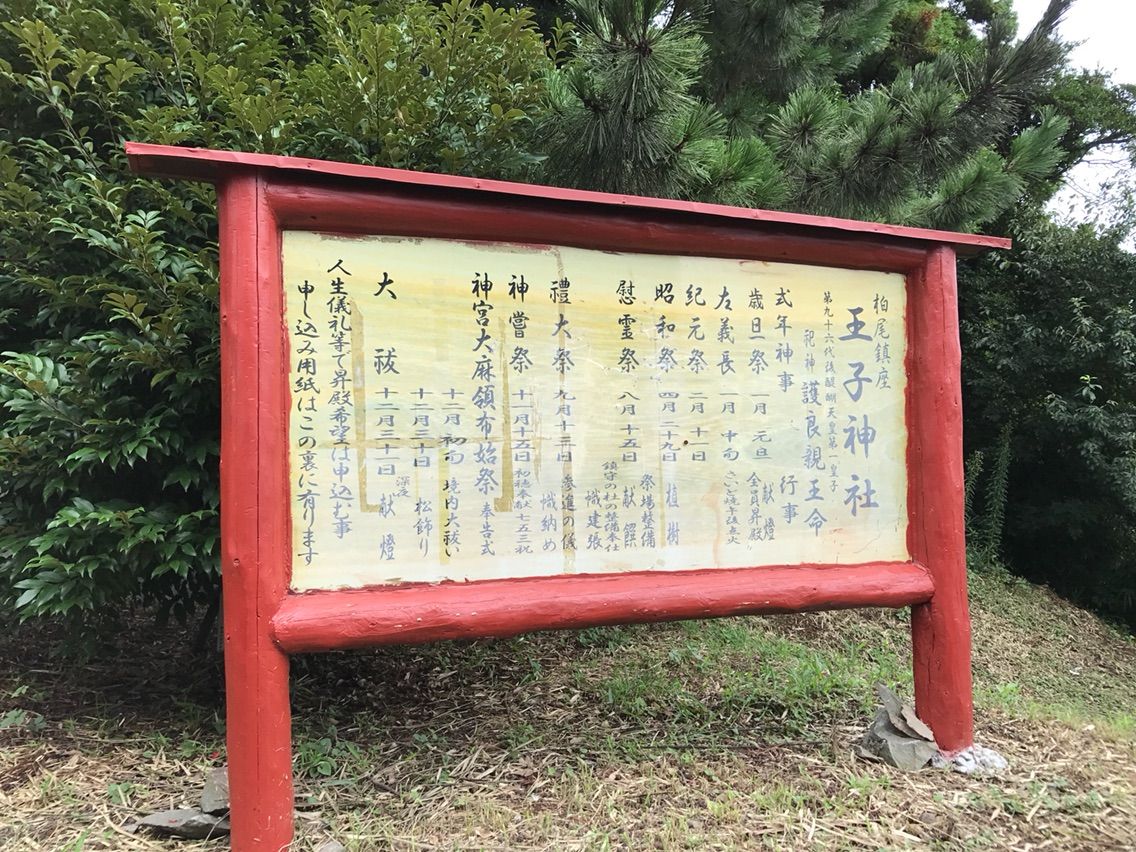 柏尾鎮座
王子神社
第九十六代後醍醐天皇第一皇子
祀神 護良親王命
式年神事 行事
歳旦祭 一月 元旦 献燈 全員昇殿
左義長 一月 中旬 さいと焼午後点火
紀元祭 二月十一日
昭和祭 四月二十九日 植樹
祭場整備
慰霊祭 八月十五日 献饌
鎮守の杜の整備奉仕
幟建張
禮大祭 九月十三日 参進の儀
幟納め
神嘗祭 十一月十五日 初穂奉献七五三祝
神宮大麻領布始祭 奉告式
十二月初旬 境内大祓い
十二月三十日 松飾り
大祓 十二月三十一日 深夜 献燈
人生儀礼等で昇殿希望は申込む事
申し込み用紙はこの裏に有ります